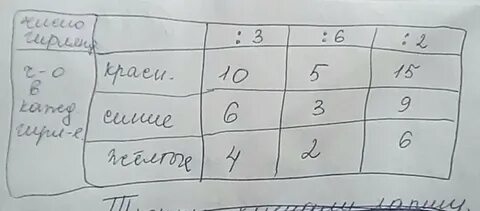 число
гирлянд
: 3 : 6 : 2
ч-о
в
кажд
гирл-е
красн. 10 5 15
синие 6 3 9
жёлтые 4 2 6